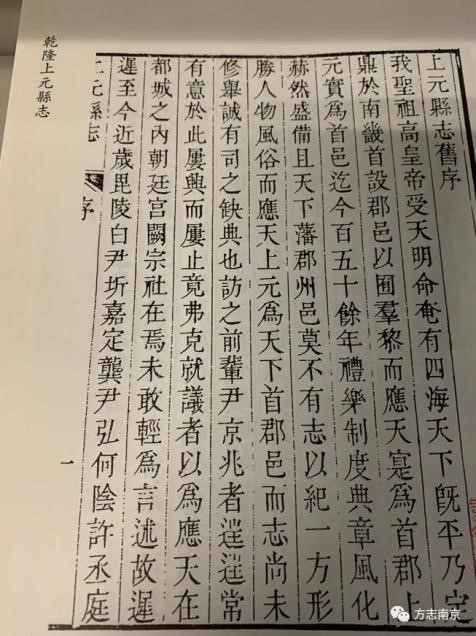 乾隆上元縣志
上元縣志舊序
我聖祖高皇帝受天明命奄有四海天下既平乃定
鼎於南畿首設郡邑以囿羣黎而應天寔爲首郡上
元實爲首邑迄今百五十餘年禮樂制度典章風化
赫然盛備且天下藩郡州邑莫不有志以紀一方形
勝人物風俗而應天上元爲天下首郡邑而志尚未
修舉誠有司之缺典也訪之前輩尹京兆者逞逞常
有意於此屢興而屢止竟弗克就議者以爲應天在
都城之內朝廷宮闕宗社在焉未敢輕爲言述故遲
遲至今近歲毘陵白尹圻嘉定龔尹弘何陰許丞庭
上元縣志
序
一
方志南京